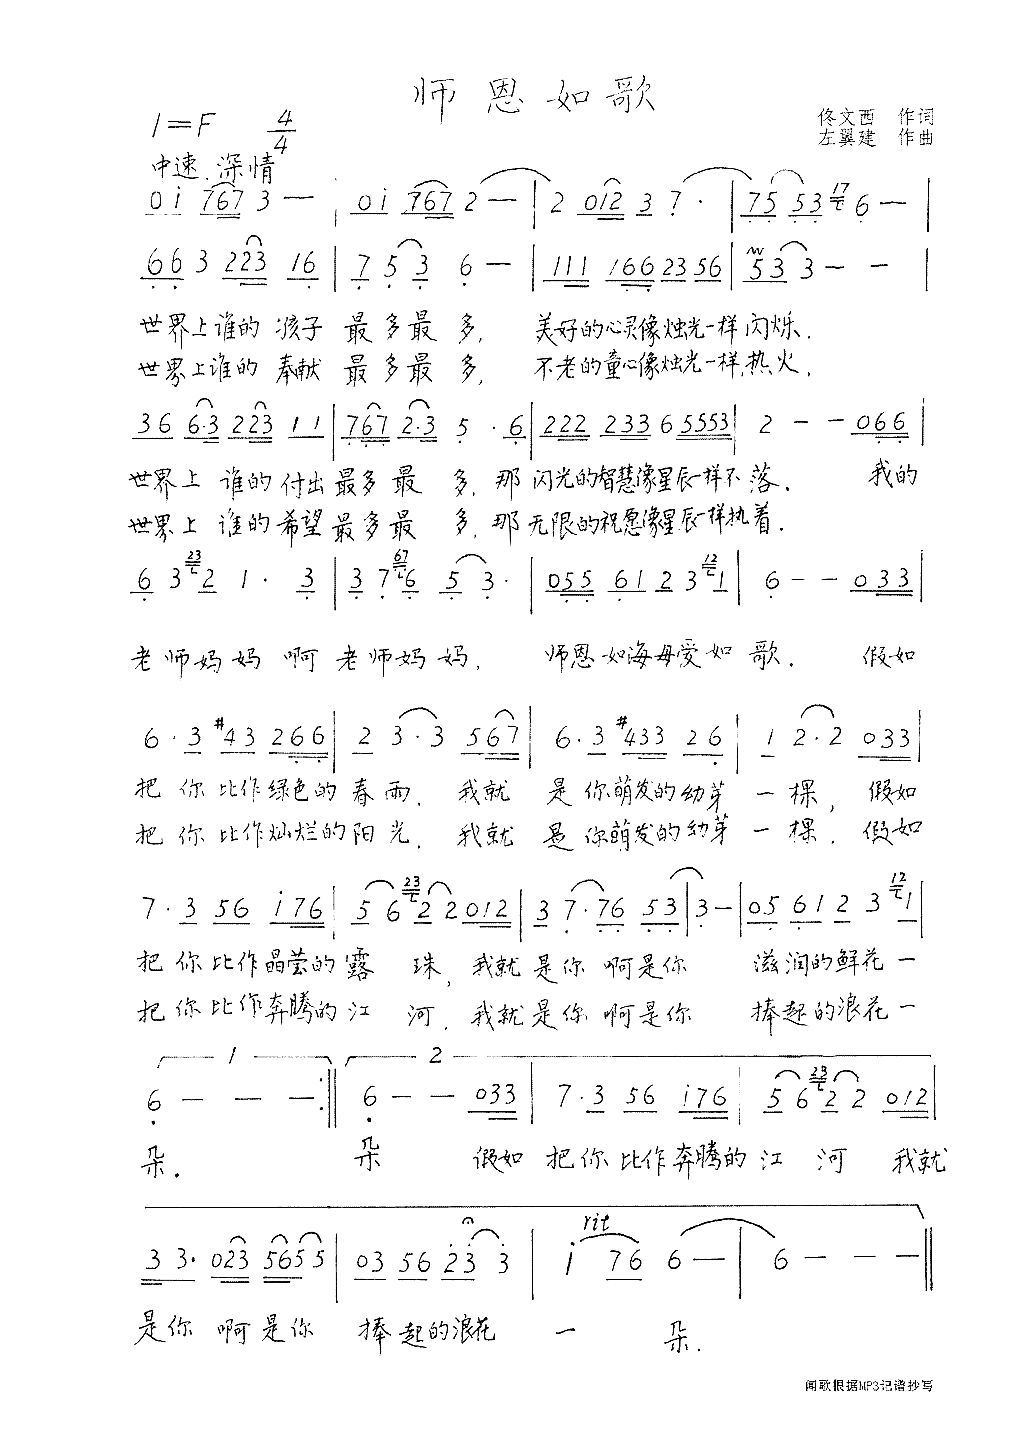 师恩如歌
1=F 4/4
佟文西 作词
左翼建 作曲
中速.深情
0 i 767 3 — | 0 i 767 2 — | 2 012 3 7 · | 75 53 17 6 — |
66 3 223 16 | 7 5 3 6 — | 111 166 23 56 | 53 3 — — |
世界上谁的孩子最多最多, 美好的心灵像烛光一样闪烁.
世界上谁的奉献最多最多, 不老的童心像烛光一样,热火,
36 6·3 223 11 | 767 2·3 5 · 6 | 222 233 6 5553 | 2 — — 066 |
世界上谁的付出最多最多,那闪光的智慧像星辰一样不落. 我的
世界上谁的希望最多最多,那无限的祝愿像星辰一样执着.
6 3 23 2 1 · 3 | 3 7 67 6 5 3 · | 055 61 2 3 12 1 | 6 — — 033 |
老师妈妈啊老师妈妈, 师恩如海母爱如歌. 假如
6 · 3 #43 266 | 2 3 · 3 567 | 6 · 3 #433 26 | 1 2 · 2 033 |
把你比作绿色的春雨, 我就是你萌发的幼芽一棵, 假如
把你比作灿烂的阳光, 我就是你萌发的幼芽一棵, 假如
7 · 3 56 i76 | 5 6 23 2 2 012 | 3 7 · 76 53 | 3 — | 05 61 2 3 12 1 |
把你比作晶莹的露珠,我就是你啊是你 滋润的鲜花一
把你比作奔腾的江河,我就是你啊是你 捧起的浪花一
1 2
6 — — — :‖ 6 — — 033 | 7 · 3 56 i76 | 5 6 23 2 2 012 |
朵. 朵 假如把你比作奔腾的江河 我就
rit
3 3 · 023 5655 | 03 56 23 3 | i 76 6 — | 6 — — — ‖
是你啊是你捧起的浪花一朵.
闻歌根据MP3记谱抄写